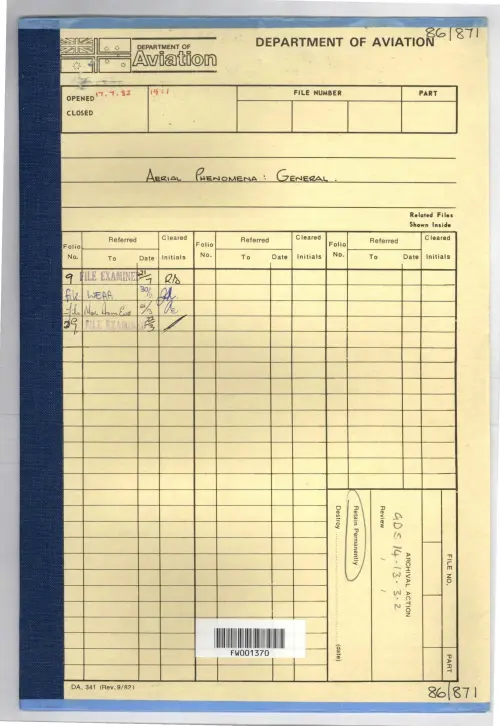 86/871
DEPARTMENT OF
Aviation
DEPARTMENT OF AVIATION
OPENED 17.9.82
CLOSED
FILE NUMBER
PART
AERIAL PHENOMENA : GENERAL.
Related Files
Shown Inside
Folio No.
Referred
To
Date
Cleared
Initials
Folio No.
Referred
To
Date
Cleared
Initials
Folio No.
Referred
To
Date
Cleared
Initials
9 FILE EXAMINED
file
29 FILE EXAMINED
ARCHIVAL ACTION
GDS 14.13.3.2
Review / /
Retain Permanently
Destroy (date)
FILE NO.
PART
FW001370
DA. 341 (Rev.9/82)
86/871